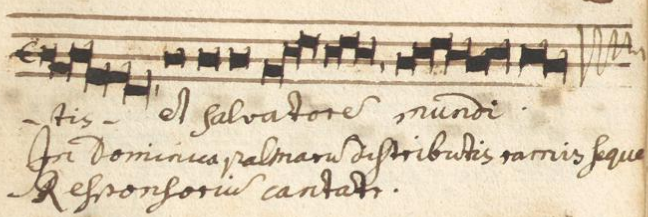 -tis- et salvatore mundi.
In Dominica palmarũ distributis ramis seque
Responsoriũ cantate.